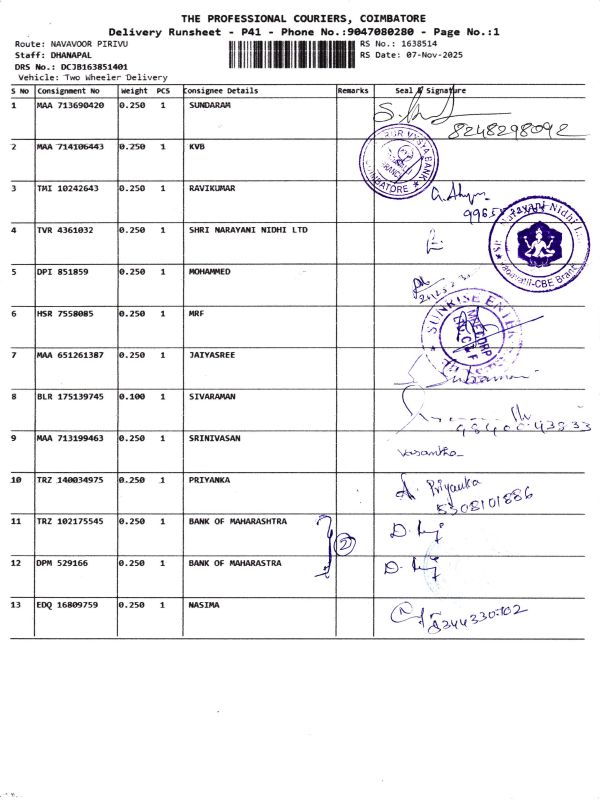 THE PROFESSIONAL COURIERS, COIMBATORE
Delivery Runsheet - P41 - Phone No.:9047080280 - Page No.:1
Route: NAVAVOOR PIRIVU RS No.: 1638514
Staff: DHANAPAL RS Date: 07-Nov-2025
DRS No.: DCJB163851401
Vehicle: Two Wheeler Delivery
S No Consignment No Weight PCS Consignee Details Remarks Seal & Signature
1 MAA 713690420 0.250 1 SUNDARAM
8248298092
2 MAA 714106443 0.250 1 KVB
VYSYA BANK
COIMBATORE
3 TMI 10242643 0.250 1 RAVIKUMAR
4 TVR 4361032 0.250 1 SHRI NARAYANI NIDHI LTD
Narayani Nidhi
-CBE Branch
5 DPI 851859 0.250 1 MOHAMMED
6 HSR 7558085 0.250 1 MRF
SUNRISE ENTER
7 MAA 651261387 0.250 1 JAIYASREE
8 BLR 175139745 0.100 1 SIVARAMAN
98400 43833
9 MAA 713199463 0.250 1 SRINIVASAN
Vasantha
10 TRZ 140034975 0.250 1 PRIYANKA
A. Priyanka
5308101886
11 TRZ 102175545 0.250 1 BANK OF MAHARASHTRA
2
12 DPM 529166 0.250 1 BANK OF MAHARASTRA
13 EDQ 16809759 0.250 1 NASIMA
8344330702